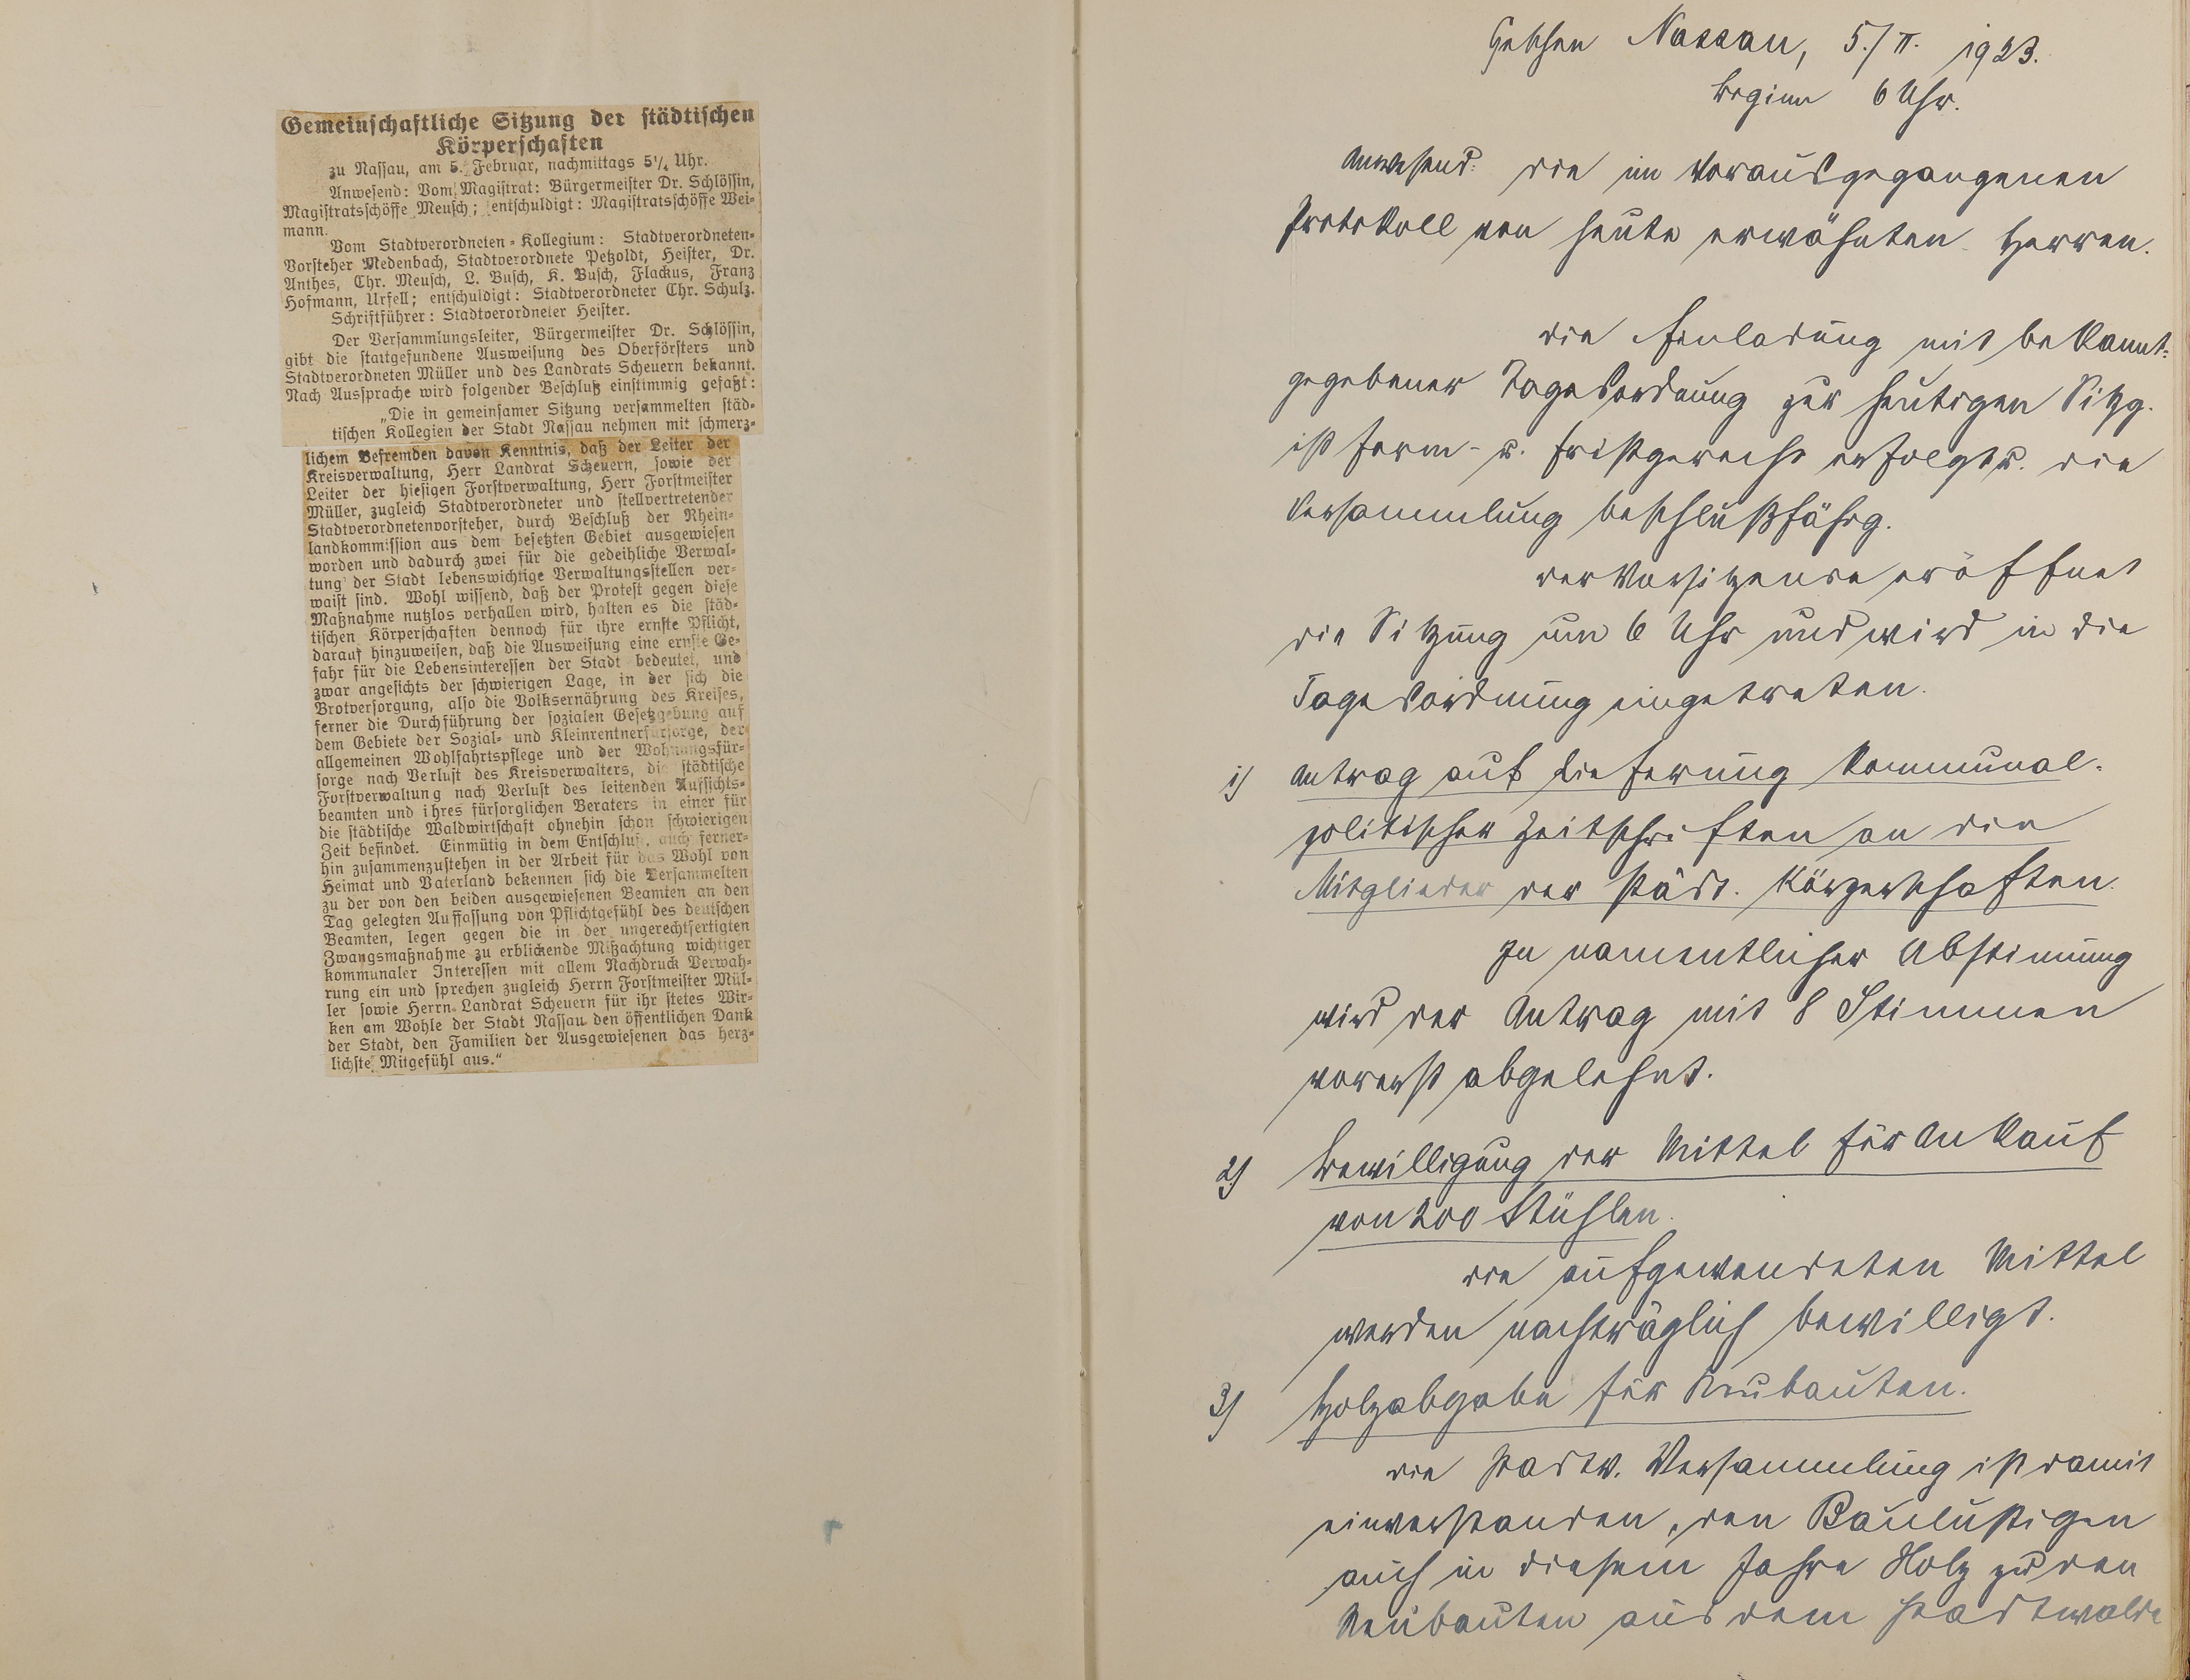 Gemeinschaftliche Sitzung der städtischen
Körperschaften
zu Nassau, am 5. Februar, nachmittags 5¼ Uhr.
Anwesend: Vom Magistrat: Bürgermeister Dr. Schlössin,
Magistratsschöffe Meusch; entschuldigt: Magistratsschöffe Wei-
mann.
Vom Stadtverordneten-Kollegium: Stadtverordneten-
Vorsteher Medenbach, Stadtverordnete Petzoldt, Heister, Dr.
Anthes, Chr. Meusch, L. Busch, K. Busch, Flackus, Franz
Hofmann, Ursell; entschuldigt: Stadtverordneter Chr. Schulz.
Schriftführer: Stadtverordneter Heister.
Der Versammlungsleiter, Bürgermeister Dr. Schlössin,
gibt die stattgefundene Ausweisung des Oberförsters und
Stadtverordneten Müller und des Landrats Scheuern bekannt.
Nach Aussprache wird folgender Beschluß einstimmig gefaßt:
„Die in gemeinsamer Sitzung versammelten städ-
tischen Kollegien der Stadt Nassau nehmen mit schmerz-
lichem Befremden davon Kenntnis, daß der Leiter der
Kreisverwaltung, Herr Landrat Scheuern, sowie der
Leiter der hiesigen Forstverwaltung, Herr Forstmeister
Müller, zugleich Stadtverordneter und stellvertretender
Stadtverordnetenvorsteher, durch Beschluß der Rhein-
landkommission aus dem besetzten Gebiet ausgewiesen
worden und dadurch zwei für die gedeihliche Verwal-
tung der Stadt lebenswichtige Verwaltungsstellen ver-
waist sind. Wohl wissend, daß der Protest gegen diese
Maßnahme nutzlos verhallen wird, halten es die städ-
tischen Körperschaften dennoch für ihre ernste Pflicht,
darauf hinzuweisen, daß die Ausweisung eine ernste Ge-
fahr für die Lebensinteressen der Stadt bedeutet, und
zwar angesichts der schwierigen Lage, in der sich die
Brotversorgung, also die Volksernährung des Kreises,
ferner die Durchführung der sozialen Gesetzgebung auf
dem Gebiete der Sozial- und Kleinrentnerfürsorge, der
allgemeinen Wohlfahrtspflege und der Wohnungsfür-
sorge nach Verlust des Kreisverwalters, die städtische
Forstverwaltung nach Verlust des leitenden Aufsichts-
beamten und ihres fürsorglichen Beraters in einer für
die städtische Waldwirtschaft ohnehin schon schwierigen
Zeit befindet. Einmütig in dem Entschluß, auch ferner-
hin zusammenzustehen in der Arbeit für das Wohl von
Heimat und Vaterland bekennen sich die Versammelten
zu der von den beiden ausgewiesenen Beamten an den
Tag gelegten Auffassung von Pflichtgefühl des deutschen
Beamten, legen gegen die in der ungerechtfertigten
Zwangsmaßnahme zu erblickende Mißachtung wichtiger
kommunaler Interessen mit allem Nachdruck Verwah-
rung ein und sprechen zugleich Herrn Forstmeister Mül-
ler sowie Herrn Landrat Scheuern für ihr stetes Wir-
ken am Wohle der Stadt Nassau den öffentlichen Dank
der Stadt, den Familien der Ausgewiesenen das herz-
lichste Mitgefühl aus.“
Geschen Nassau, 5./II. 1923.
Beginn 6 Uhr.
Anwesend: die im vorausgegangenen
Protokoll von heute erwähnten Herren.
Die Einladung mit bekannt-
gegebener Tagesordnung zur heutigen Sitzg.
ist form- u. fristgerecht erfolgt u. die
Versammlung beschlußfähig.
Der Vorsitzende eröffnet
die Sitzung um 6 Uhr und wird in die
Tagesordnung eingetreten.
1) Antrag auf Lieferung kommunal-
politischer Zeitschriften an die
Mitglieder der städt. Körperschaften.
In namentlicher Abstimmung
wird der Antrag mit 8 Stimmen
vorerst abgelehnt.
2) Bewilligung der Mittel für Ankauf
von 200 Stühlen.
Die aufgewendeten Mittel
werden nachträglich bewilligt.
3) Holzabgabe für Neubauten.
Die Stadtv. Versammlung ist damit
einverstanden, den Baulustigen
auch in diesem Jahre Holz zu den
Neubauten aus dem Stadtwalde